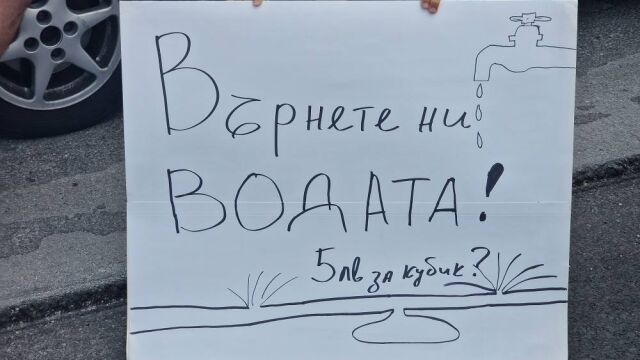 Върнете ни
ВОДАТА!
5 лв за кубик?